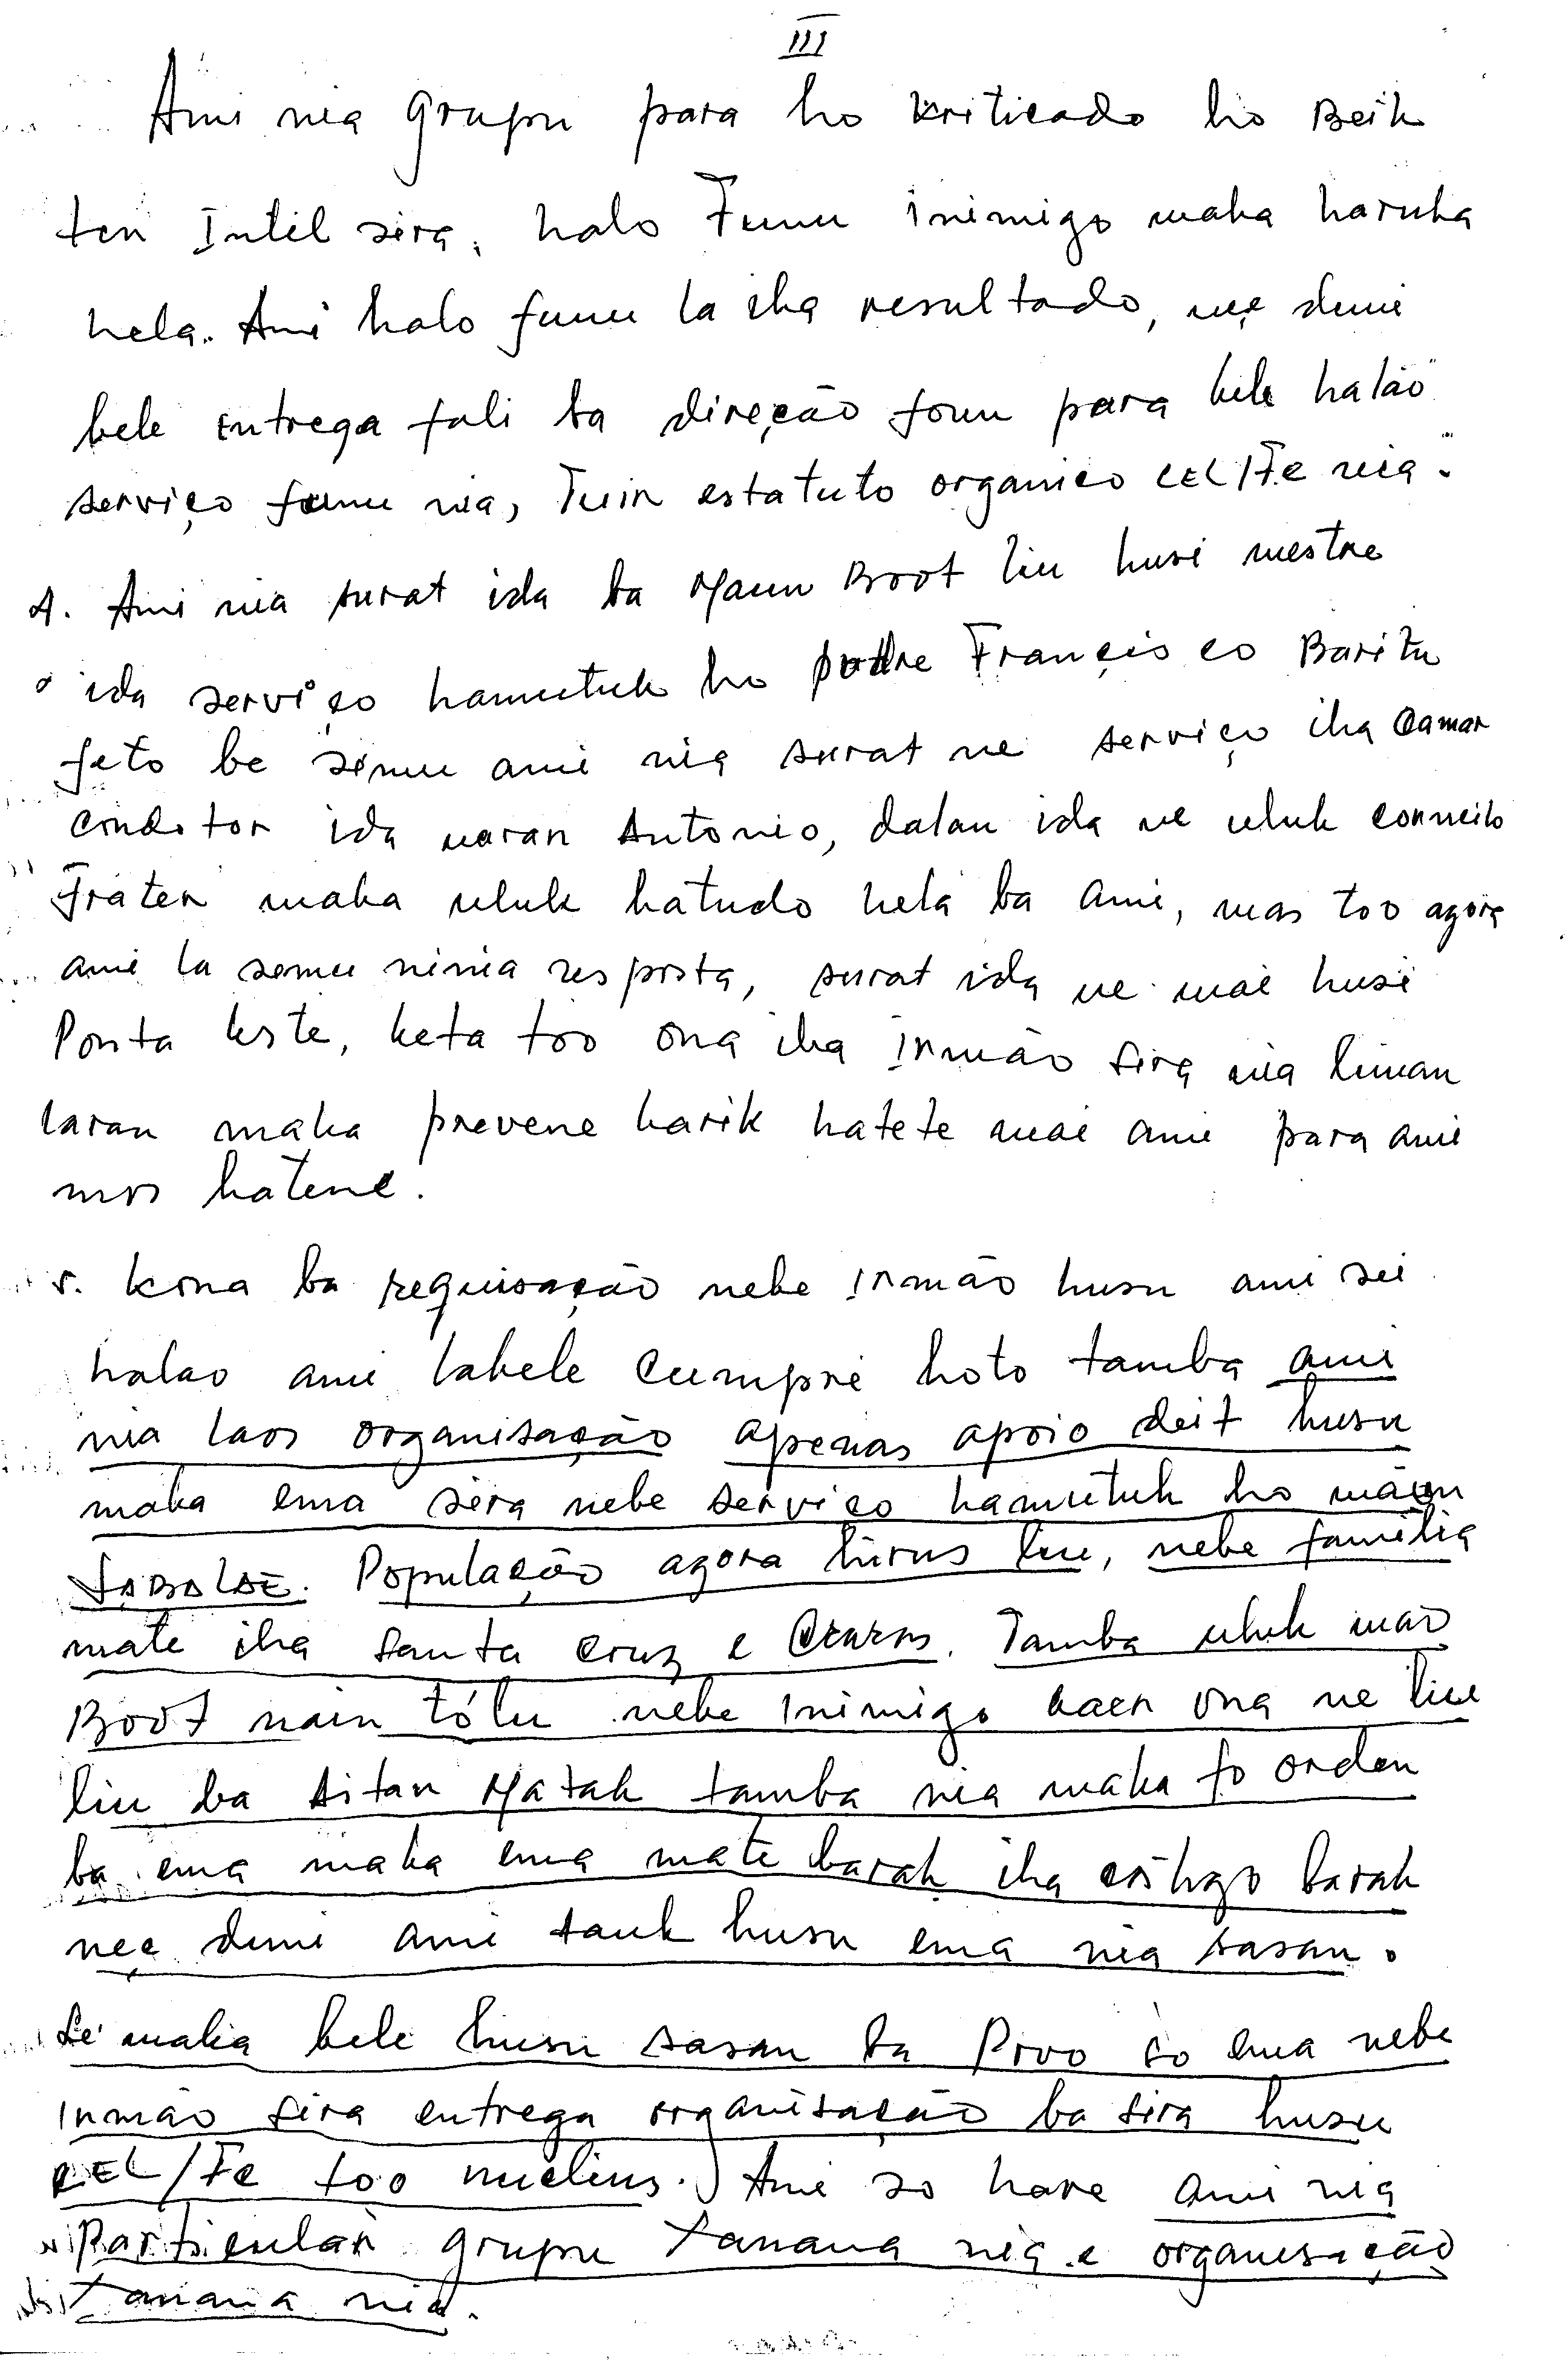 III
Ami nia grupu para ho kriticado ho Beik
ten Intel sira, halo Funu inimigo maka haruka
hela. Ami halo funu la iha resultado, nee duni
bele entrega fali ba direção foun para bele halão
serviço funu nia, Tuir estatuto organico CEL/FC nia.
4. Ami nia surat ida ba Maun Boot liu husi mestre
ida serviço hamutuk ho padre Francisco Baritu
feto be simu ami nia surat ne serviço iha Camar
condotor ida naran Antonio, dalan ida ne uluk conneilo
Frater maka uluk hatudo hela ba ami, mas too agora
ami la semu ninia resposta, surat ida ne mai husi
Ponta leste, keta too ona iha inmão sira nia liman
laran maka prevene karik hatete mai ami para ami
mos hatene.
5. Kona ba requisação nebe inmão husu ami sei
halao ami labele cumpri hoto tamba ami
nia laos organisação apenas apoio deit husu
maka ema sira nebe serviço hamutuk ho maun
SABALAE. População agora hirus liu, nebe familia
mate iha Santa Cruz e Craras. Tamba uluk mao
Boot nain tólu nebe inimigo kaer ona ne liu
liu ba Aitan Matak tamba nia maka fo orden
ba ema maka ema mate barak iha
barak
nee duni ami tauk husu ema nia sasan.
Se maka bele husu sasan ba Povo so ema nebe
inmão sira entrega organisação ba sira husu
CEL/FC too nucleus. Ami so hare ami nia
Particular grupu Xanana nia e organisação
Xanana nia.